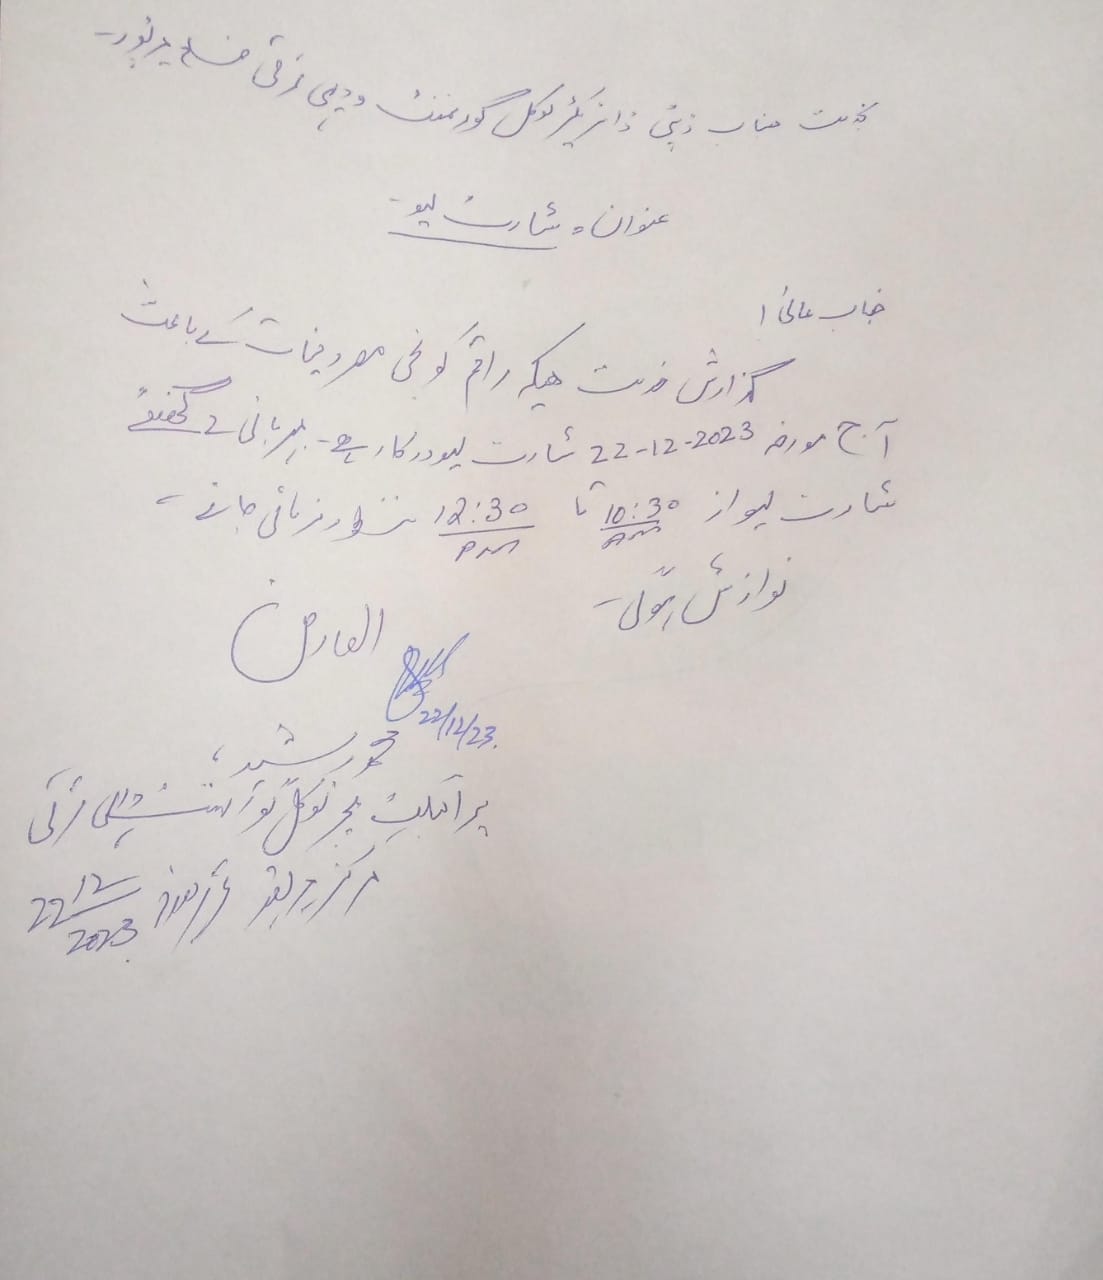 بخدمت جناب ڈپٹی ڈائریکٹر لوکل گورنمنٹ و دیہی ترقی ضلع میرپور۔
عنوان: شارٹ لیو۔
جناب عالی!
گزارش خدمت ہیکہ راقم کو نجی مصروفیات کے باعث
آج مورخہ 22-12-2023 شارٹ لیو درکار ہے۔ مہربانی 2 گھنٹے
شارٹ لیو از 10:30 AM تا 12:30 PM منظور فرمائی جائے۔
نوازش ہوگی۔
العارض
22/12/23.
محمد رشید،
پراجیکٹ منیجر لوکل گورنمنٹ دیہی ترقی
مرکز میرپور مورخہ 22/12/2023